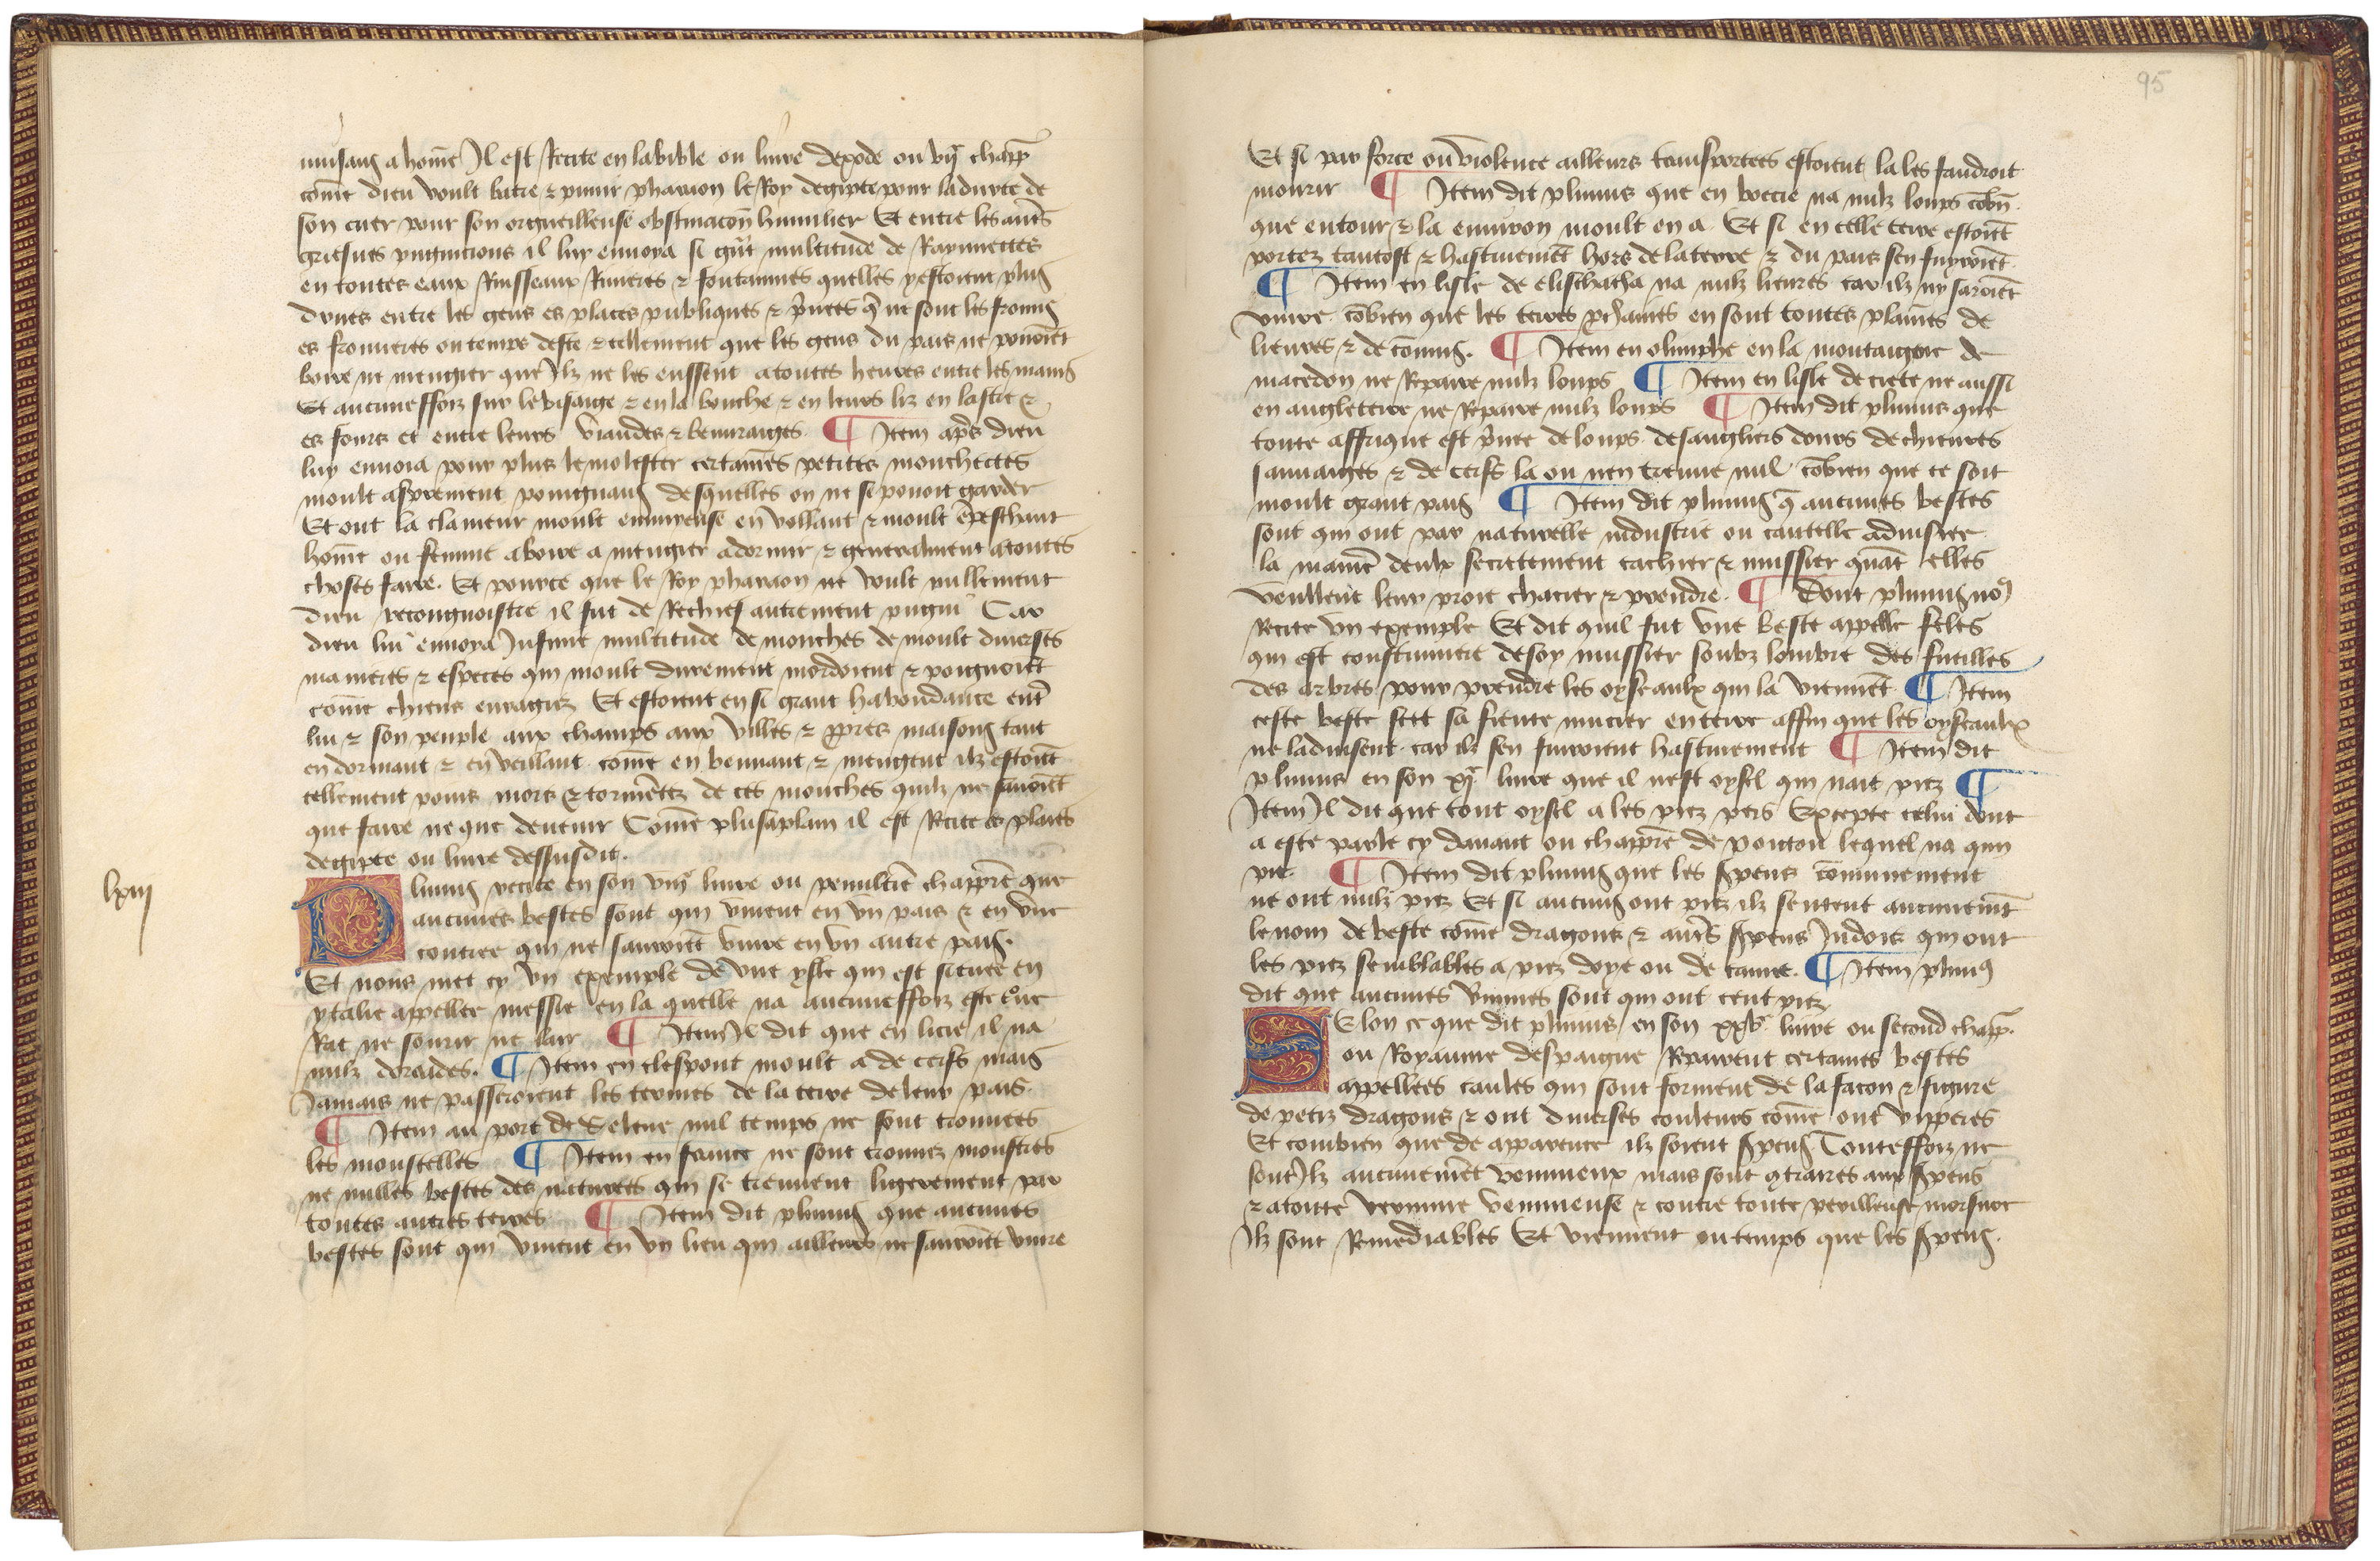 nuisans a hom̄e Il est Recite en la bible ou liure dexode ou vijᵉ chapp̄
com̄e dieu voult batre ⁊ punir pharaon le Roy degipte pour la durte de
son cuer pour son orgueilleuse obstinacōn humilier Et entre les autr̄s
griefues pugnicions il luy enuoya si gn̄t multitude de Raynnettes
en toutes eaux Ruisseaux Riuieres ⁊ fontainnes quelles y estoient plus
drues entre les gens es places publiques ⁊ p̄uees q̄ ne sont les fromis
es fromieres ou temps deste ⁊ tellement que les gens du pais ne pouoiēt
boire ne mengier que Ilz ne les eussent a toutes heures entre les mains
Et aucuneffoiz sur le visaige ⁊ en la bouche ⁊ en leurs liz en lastre ⁊
es fours et entre leurs viandes ⁊ beuuraiges ¶ Item apr̄s dieu
luy enuoia pour plus le molester certain̄es petites mouchettes
moult asprement poingnans desquelles on ne se pouoit garder
Et ont la clameur moult ennuyeuse en vollant ⁊ moult ēpeschant
hom̄e ou femme a boire a mengier a dormir ⁊ generalment a toutes
choses faire. Et pource que le Roy pharaon ne voult nullement
dieu recongnoistre il fut de Rechief autrement pugni Car
dieu lui enuoya Infinie multitude de mouches de moult diuerses
manieres ⁊ especes qui moult durement mordoient ⁊ poignoiēt
com̄e chiens enragiez Et estoient en si grant habondance entr̄
lui ⁊ son peuple aux champs aux villes ⁊ ꝓpres maisons tant
en dormant ⁊ en veillant com̄e en beuuant ⁊ mengent ilz estoiēt
tellement poins mors ⁊ tormētez de ces mouches quilz ne sauoiēt
que faire ne que deuenir Com̄e plus a plain il est Recite es plaies
degipte ou liure dessusdit.
lxiij
Plinius recite en son viijᵉ liure ou penultiē chapp̄re que
aucunes bestes sont qui viuent en vn pais ⁊ en vne
contree qui ne sauroiēt viure en vn autre pais.
Et nous met cy vn exemple de vne ysle qui est situee en
ytalie appellee messie en la quelle na aucuneffoiz este
Rat ne souriz ne lair ¶ Item Il dit que en licie il na
nulz doraides. ¶ Item en elespont moult a de cerfs mais
Jamais ne passeroient les termes de la terre de leur pais.
¶ Item au port de Seleuc nul temps ne sont trouuees
les moustelles ¶ Item en france ne sont trouuez monstres
ne nulles bestes des natures qui se tiennent ligierement par
toutes autres terres ¶ Item dit plinius que aucunes
bestes sont qui viuent en vn lieu qui ailleurs ne sauroiēt viure
95
Et si par force ou violence ailleurs transportees estoient la les faudroit
mourir ¶ Item dit plinius que en boecie na nulz loups cōbn̄
que entour ⁊ la enuiron moult en a Et si en celle terre estoiēt
portez tantost ⁊ hastiuemēt hors de la terre ⁊ du pais sen fuyroiēt
¶ Item en lisle de elischatha na nulz lieures car ilz ny saroiēt
viure cōbien que les terres ꝓchaines en sont toutes plain̄es de
lieures ⁊ de cōnins. ¶ Item en olimphe en la montaigne de
macedon ne Repaire nulz loups ¶ Item en lisle de crete ne aussi
en angleterre ne Repaire nulz loups ¶ Item dit plinius que
toute affrique est p̄uee de loups de sangliers dours de chieures
sauuaiges ⁊ de cerfs la ou nen treuue nul cōbien que ce soit
moult grant pais ¶ Item dit plinius q̄ aucunes bestes
sont qui ont par naturelle industrie ou cautelle aduisier
la manier̄ deulx secretement cachier ⁊ mussier quāt elles
veullent leur proie chacier ⁊ prendre. ¶ Dont plinius noꝯ
Recite vn exemple Et dit quil fut vne beste appelle feles
qui est coustumiere de soy mussier soubz lombre des fueilles
des arbres pour prendre les oyseaulx qui la vienn̄et ¶ Item
ceste beste fect sa fiente mucier en terre affin que les oyseaulx
ne laduisent car ilz sen fuiroient hastiuement ¶ Item dit
plinius en son xjᵉ liure que il nest oysel qui nait piez ¶
Item Il dit que tout oysel a les piez pers Excepte celui dont
a este parle cy dauant ou chapp̄re de ponton lequel na qun
pie ¶ Item dit plinius que les ẜpens com̄unement
ne ont nulz piez Et si aucuns ont piez ilz sentent aucunemēt
le nom de beste com̄e dragons ⁊ autr̄s ẜpens Indois qui ont
les piez semblables a piez doye ou de canne. ¶ Item pliniꝯ
dit que aucunes v̄mines sont qui ont cent piez
Selon ce que dit plinius en son xxvᵉ liure ou second chapp̄.
ou Royaume despaigne Repairent certaines bestes
appellees caules qui sont forment de la facon ⁊ figure
de petiz dragons ⁊ ont diuerses couleurs com̄e ont vipperes
Et combien que de apparence ilz soient ẜpens Touteffoiz ne
sont Ilz aucunemēt vennimeux mais sont ꝯtraires aux ẜpens
⁊ a toute vermine vennimeuse ⁊ contre toute perilleuse morsure
Ilz sont Remediables Et viennent ou temps que les ẜpens.